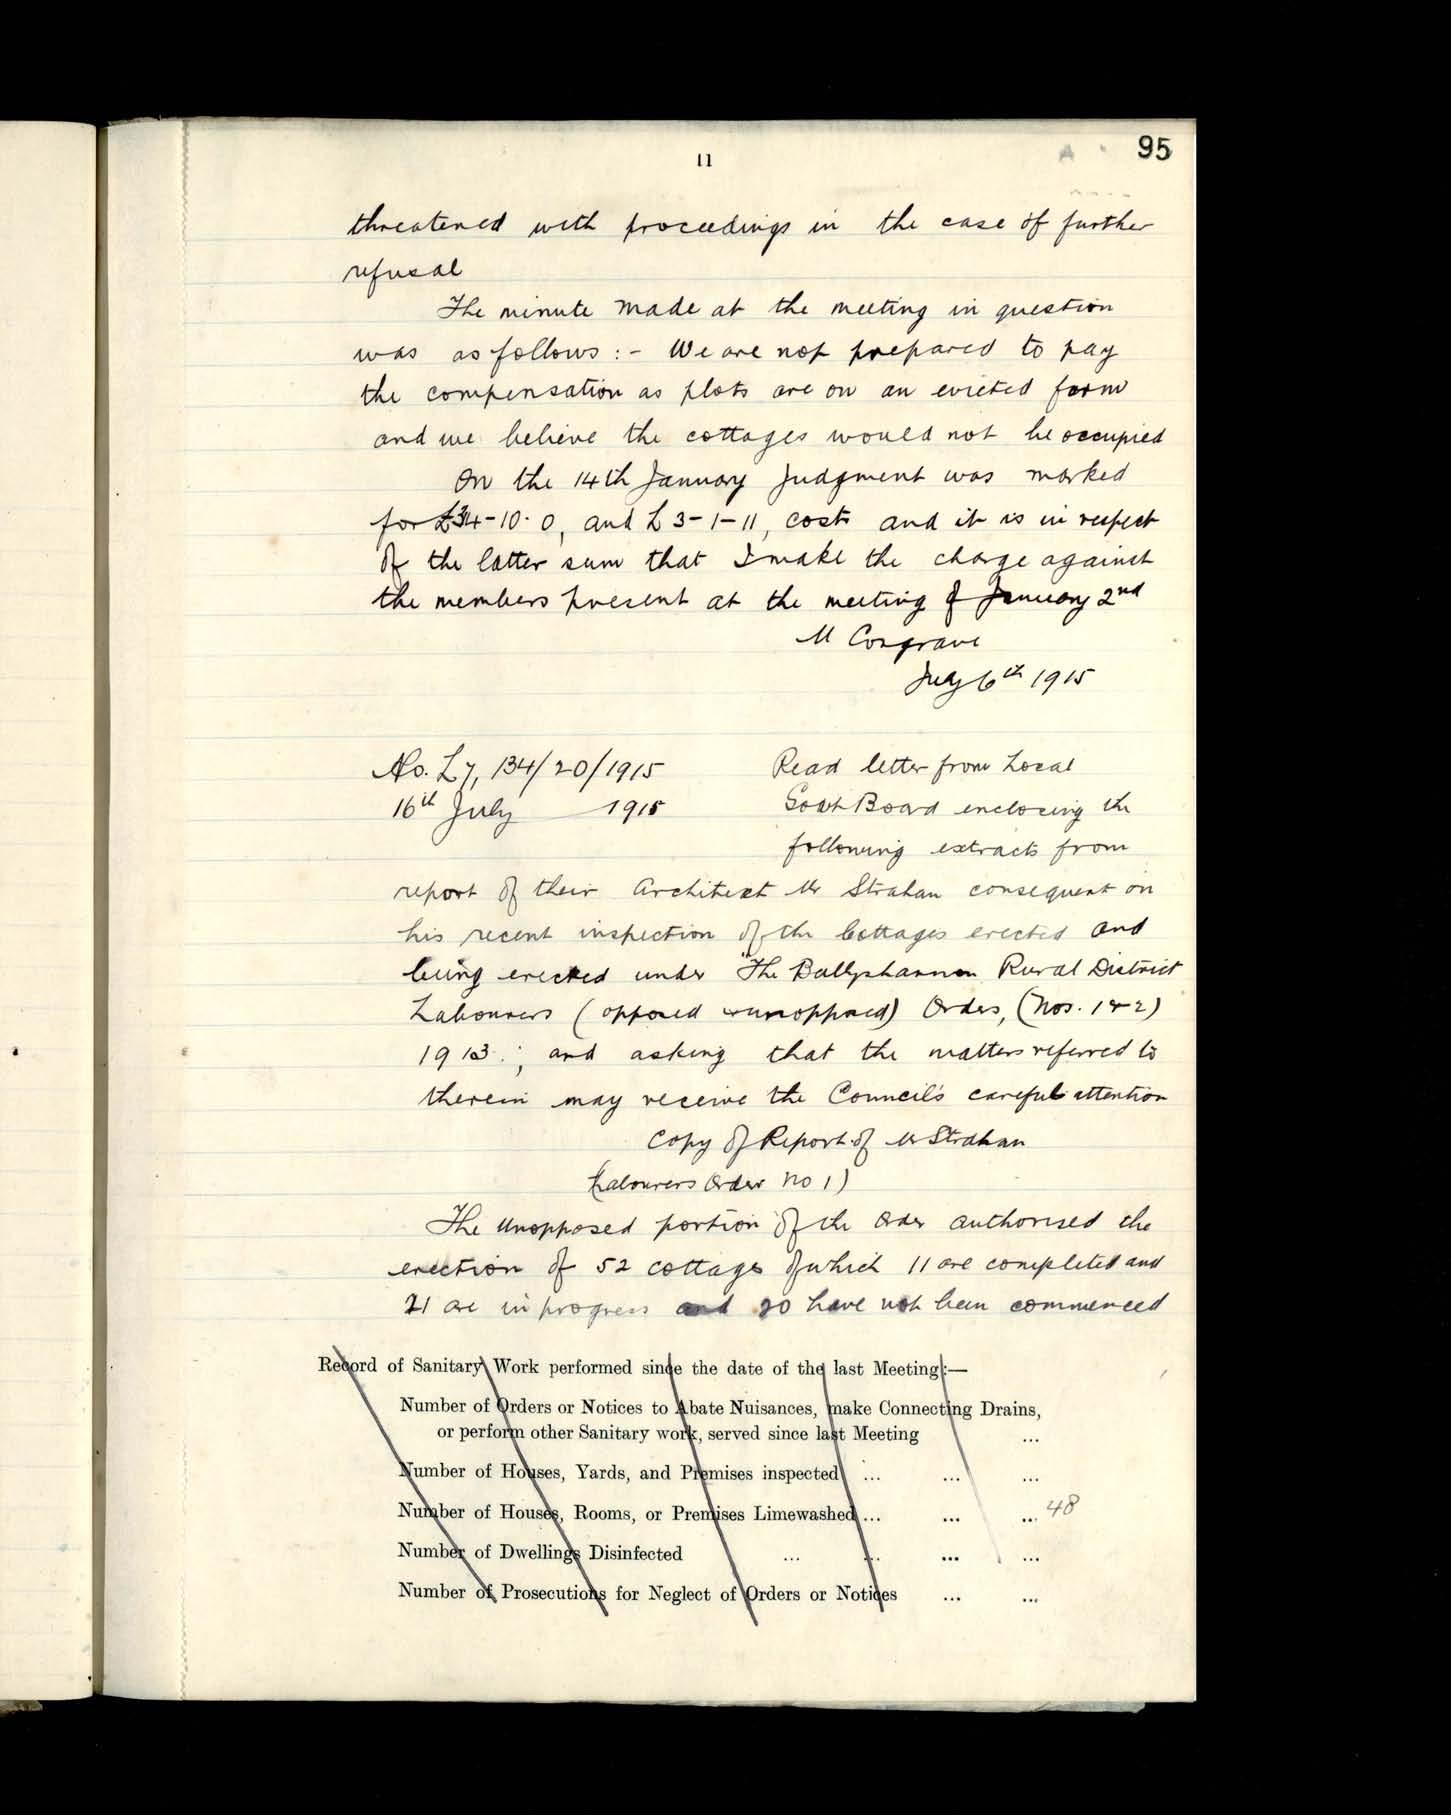 11
95
threatened with proceedings in the case of further
refusal
The minute made at the meeting in question
was as follows :- We are not prepared to pay
the compensation as plots are on an evicted farm
and we believe the cottages would not be occupied
On the 14th January Judgment was marked
for £34-10-0, and £3-1-11, costs and it is in respect
of the latter sum that I make the charge against
the members present at the meeting of January 2nd
M Cosgrave
July 6th 1915
No. L7, 134/20/1915
16th July 1915
Read letter from Local
Govt Board enclosing the
following extracts from
report of their Architect Mr Strahan consequent on
his recent inspection of the Cottages erected and
being erected under "The Ballyshannon Rural District
Labourers (opposed & unopposed) Orders, (Nos. 1 & 2)
1913; and asking that the matters referred to
therein may receive the Council's careful attention
Copy of Report of Mr Strahan
(Labourers Order No 1)
The Unopposed portion of the Order authorised the
erection of 52 cottages of which 11 are completed and
21 are in progress and 20 have not been commenced
Record of Sanitary Work performed since the date of the last Meeting:—
Number of Orders or Notices to Abate Nuisances, make Connecting Drains,
or perform other Sanitary work, served since last Meeting ...
Number of Houses, Yards, and Premises inspected ... ... ...
Number of Houses, Rooms, or Premises Limewashed ... ... ... 48
Number of Dwellings Disinfected ... ... ... ...
Number of Prosecutions for Neglect of Orders or Notices ... ...